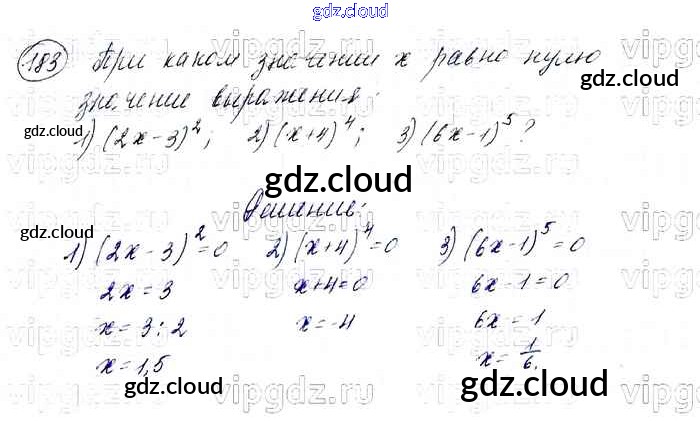 gdz.cloud
183 При каком значении x равно нулю
значение выражения:
gdz.cloud
gdz.cloud
1) (2x-3)²; 2) (x+4)⁴; 3) (6x-1)⁵?
gdz.cloud
Решение:
gdz.cloud
gdz.cloud
1) (2x-3)²=0 2) (x+4)⁴=0 3) (6x-1)⁵=0
2x=3 x+4=0 6x-1=0
x=3:2 x=-4 6x=1
x=1,5 x=1/6.
gdz.cloud
gdz.cloud
gdz.cloud